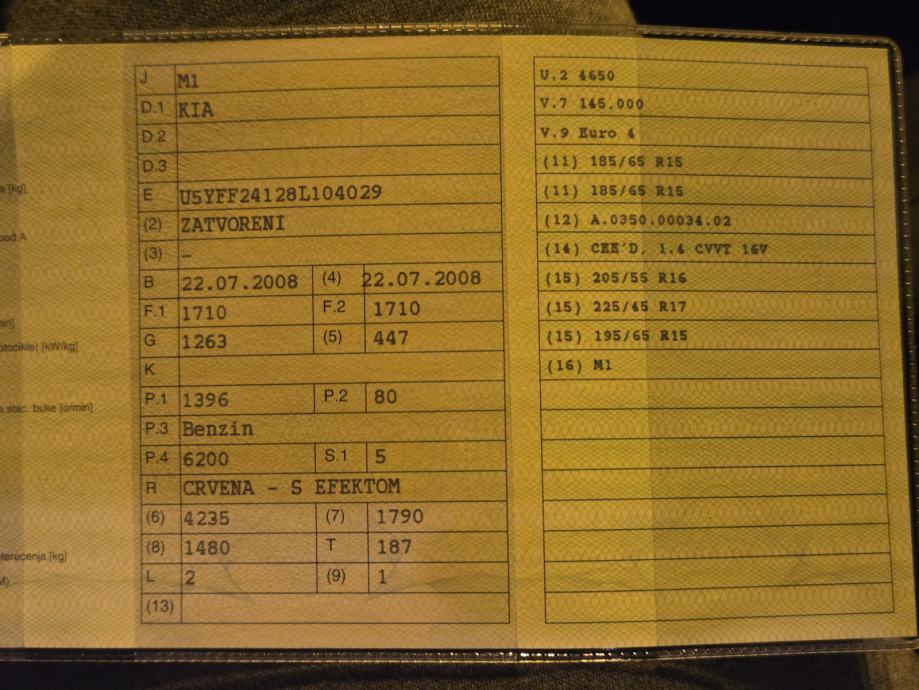 a [kg]
pod A
min]
otocikle) [kW/kg]
a stac. buke [o/min]
terećenja [kg]
M)
J M1
D.1 KIA
D.2
D.3
E U5YFF24128L104029
(2) ZATVORENI
(3) –
B 22.07.2008 (4) 22.07.2008
F.1 1710 F.2 1710
G 1263 (5) 447
K
P.1 1396 P.2 80
P.3 Benzin
P.4 6200 S.1 5
R CRVENA - S EFEKTOM
(6) 4235 (7) 1790
(8) 1480 T 187
L 2 (9) 1
(13)
U.2 4650
V.7 145.000
V.9 Euro 4
(11) 185/65 R15
(11) 185/65 R15
(12) A.0350.00034.02
(14) CEE'D, 1.4 CVVT 16V
(15) 205/55 R16
(15) 225/45 R17
(15) 195/65 R15
(16) M1